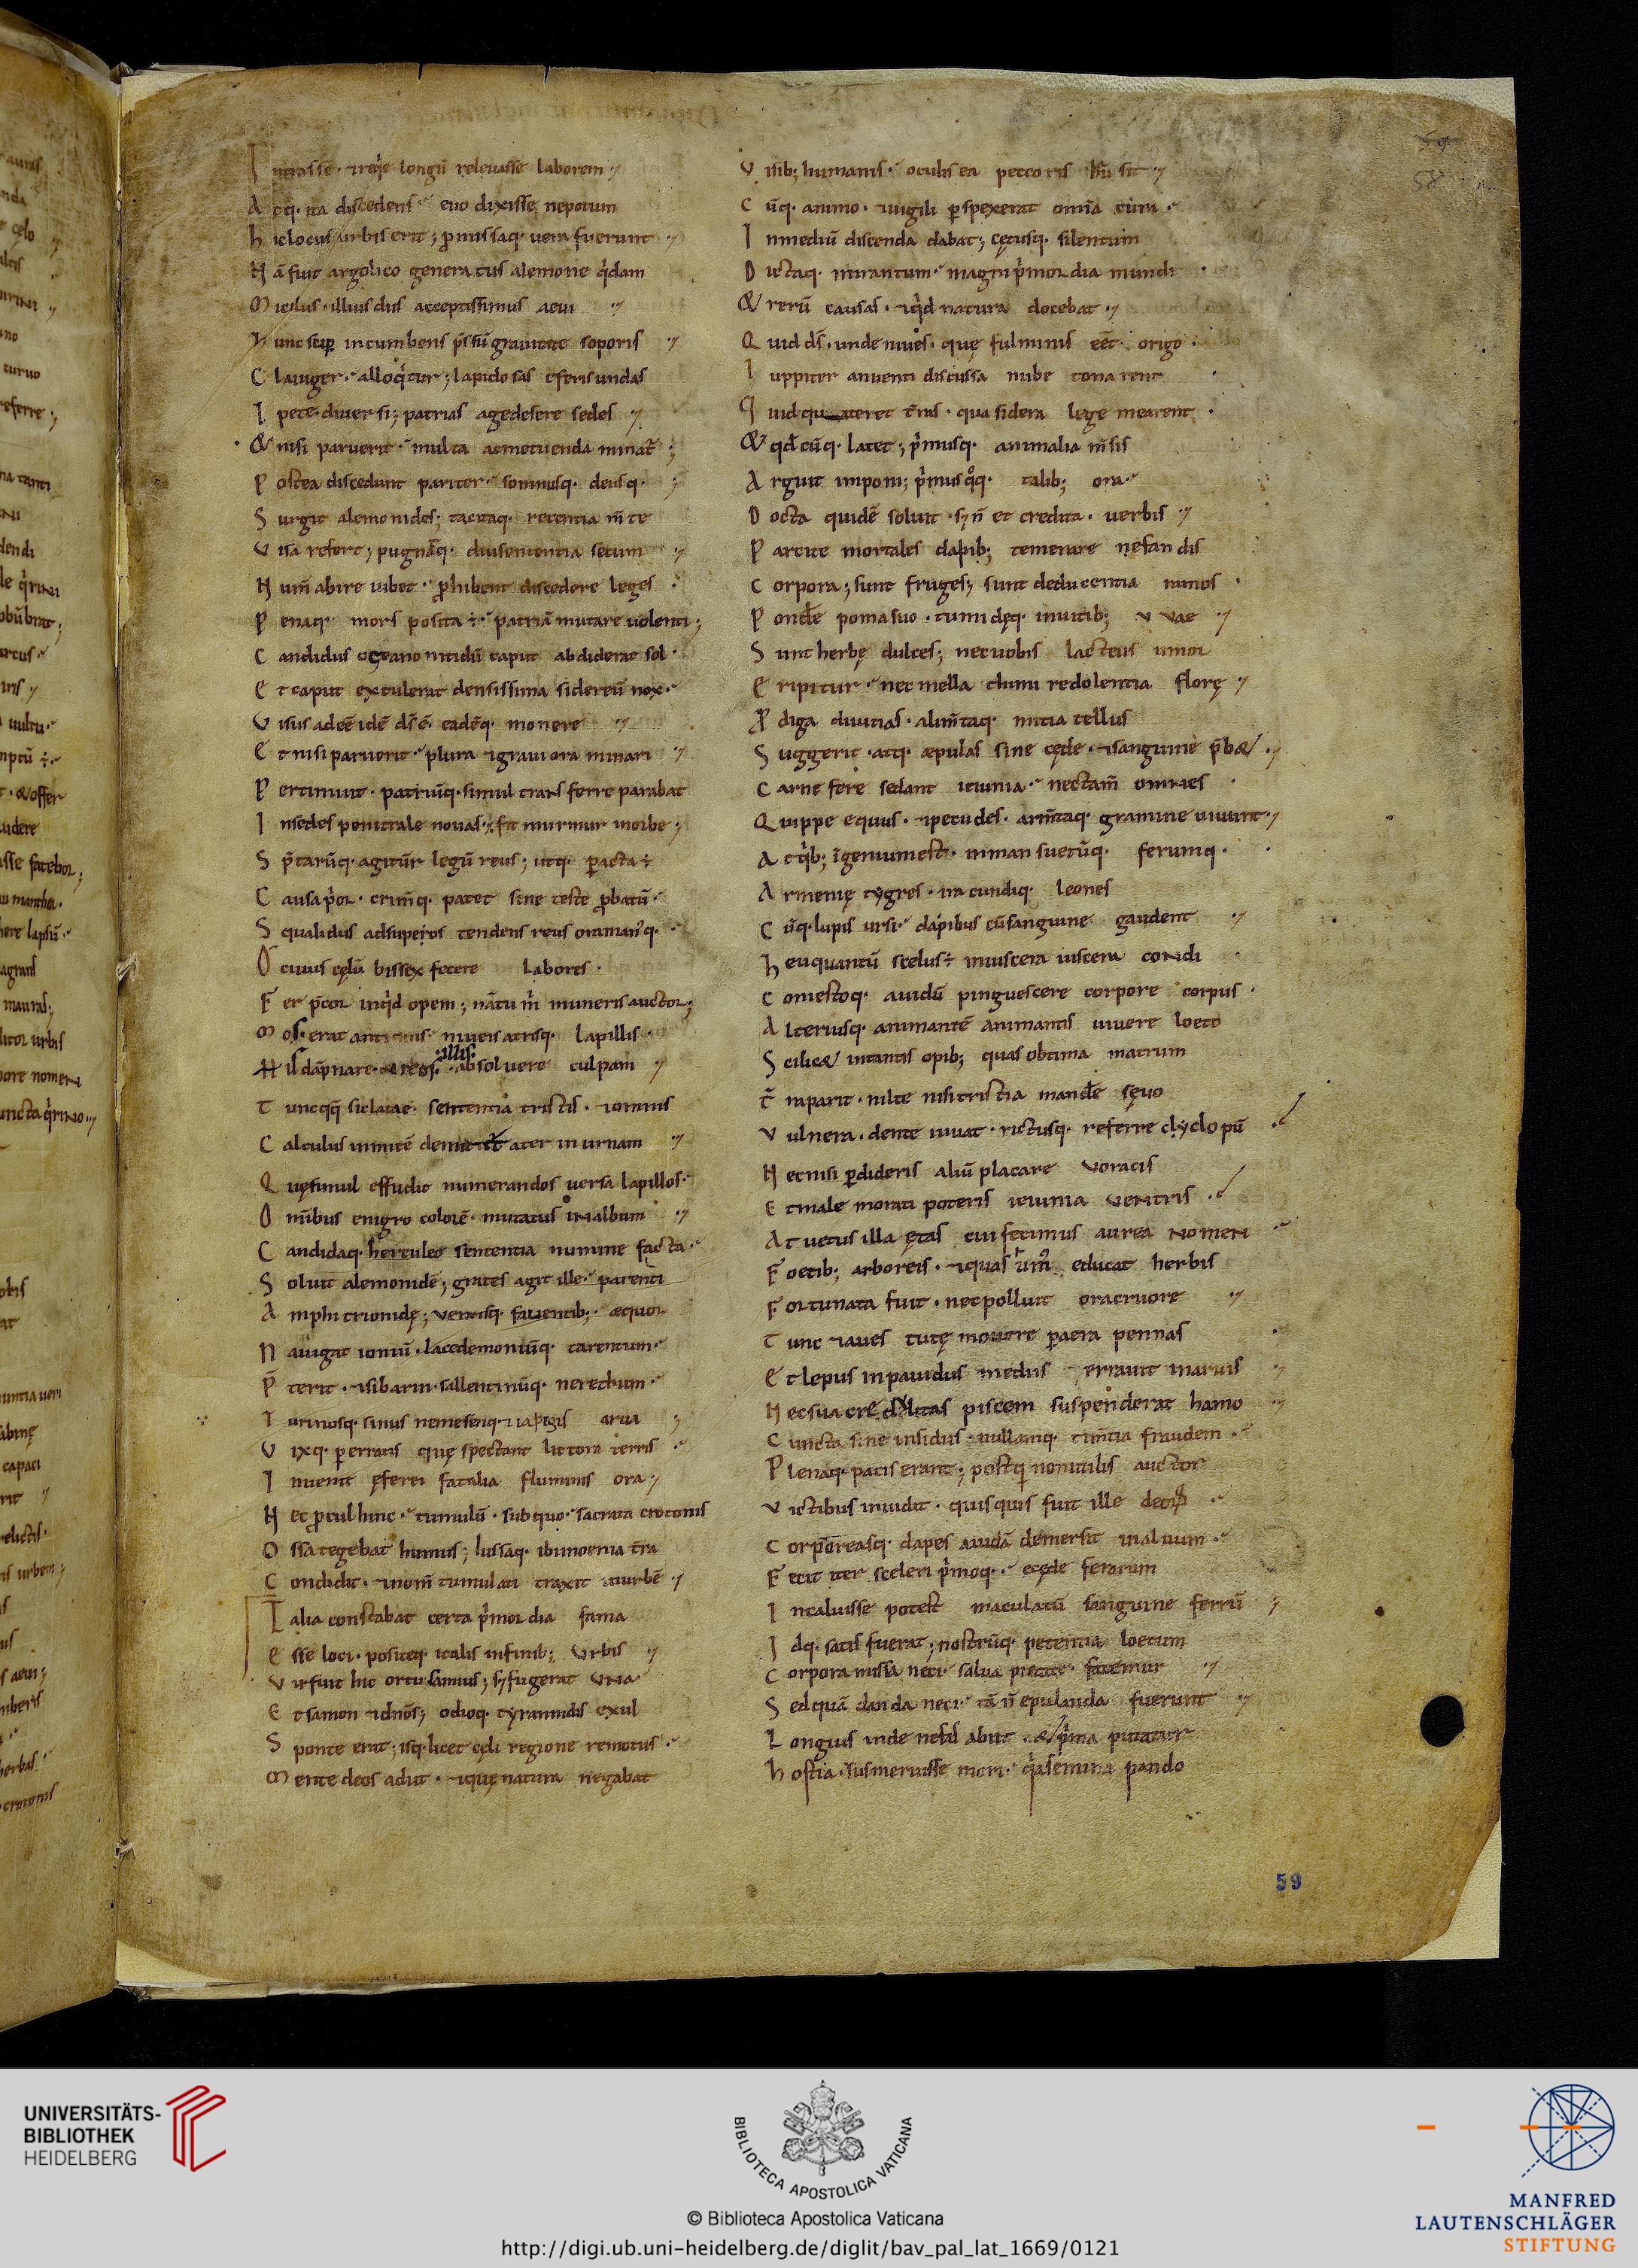 I ntrasse · & req̇e longū releuasse laborem
A tq· ita discedens euo dixisse nepotum
h ic locus urbis erit ; ꝓmissaq· uera fuerunt
N ā fuit argolico generatus alemone q̇dam
M icilus · illius diis acceptissimus aeui
h unc suꝑ incumbens p̄ssū grauitate soporis
C lauiger · alloq̇tur ; lapidosas eſeris undas
I pete · diuersi ; patrias age desere sedes
& nisi paruerit · multa ac metuenda minat̄ ;
P ostea discedunt pariter · somnusq· deusq·
S urgit alemonides ; tacitaq· recentia m̄te
V isa refert ; pugnāq· diu sententia secum
N um̄ abire iubet · ꝓhibent discedere leges
P enaq· mors posita ÷ · patriā mutare uolenti ;
C andidus oceano nitidū caput abdiderat sol ·
E t caput extulerat densissima sidereū nox ·
V isus adeē idē d̄s ē · eadēq· monere
E t nisi paruerit · plura & grauiora minari
P ertimuit · patriūq· simul transferre parabat
I n sedes penitrale nouas · fit murmur in orbe ;
S p̄tarūq· agitur legū reus ; utq· ꝑacta ÷
C ausa p̓or · crim̄q· patet sine teste ꝓbatū ·
S qualidus ad superos tendens reus ora man'q·
O cuius cęlū bissex fecere labores ·
F er p̄cor inq̇d opem ; nā tu m̓ muneris auctor ;
M os · erat antiquis niueis atrisq· lapillis
H is dāpnare · reos · illis · absoluere culpam
T unc qq̄ sic latae · sententia tristis · & omnis
C alculus inmitē demittit ater in urnam
Q uę simul effudit numerandos uersa lapillos ·
O mīibus e nigro colorē · mutatus in album
C andidaq· herculeo sententia numine facta ·
S oluit alemonidē ; grates agit ille · parenti
A mphitrionidę ; uentisq· fauentib; · aequor
N auigat ioniū · lacedemoniūq· tarentum ·
P̄ terit · & sibarin · sallentinūq· nerethum ·
T urinosq· sinus nemesenq· & iapigis arua
V ixq· ꝑerratis quę spectant littora terris
I nuenit ęſerei fatalia fluminis ora ;
N ec ꝓcul hinc · tumulū · sub quo · sacrata crotonis
O ssa tegebat humus ; iussaq· ibi moenia t̄ra
C ondidit · & nom̄ tumulati traxit in urbē
T alia constabat certa p̓mordia fama
E sse loci · positeq· italis in finib; urbis
V ir fuit hic ortu samius ; s; fugerat una
E t samon & dn̄os ; odioq· tyrannidis exul
S ponte erat ; isq· licet cęli regione remotus ·
M ente deos adiit · & quę natura negabat
V isib; humanis · oculis ea pectoris hausit
C ūq· animo · & uigili ꝑspexerat omīa cura ·
I n mediū discenda dabat ; cętusq· silentum
D ictaq· mirantum · magni p̓mordia mundi
& rerū causas · & q̇d natura docebat
Q uid d̄s · unde niues · quę fulminis eēt origo
I uppiter an uenti discussa nube tonarent
Q uid quateret t̄ras · qua sidera lege mearent ·
& qd̄cūq· latet ; p̓musq· animalia m̄sis
A rguit imponi ; p̓mus qͦq· talib; ora ·
D octa quidē soluit · s; n̄ et credita · uerbis
P arcite mortales dapib; temerare nefandis
C orpora ; sunt fruges ; sunt deducentia ramos ·
P ond̄e poma suo · tumidęq· in uitib; uuae
S unt herbę dulces ; nec uobis lacteus umor
E ripitur · nec mella thimi redolentia florę
P̱ diga diuitias · alim̄taq· mitia tellus
S uggerit · atq· aepulas sine cęde · & sanguine p̄b&
C arne fere sedant ieiunia · nec tam̄ omnes
Q uippe equus · & pecudes · arm̄taq· gramine uiuunt
A t q̇b; īgenium est · inmansuetūq· ferumq·
A rmenię tygres · iracundiq· leones
C ūq· lupis ursi · dapibus cū sanguine gaudent
h eu quantū scelus ÷ in uiscera uiscera condi
C omestoq· auidū pinguescere corpore corpus ·
A lteriusq· animantē animantis uiuere loeto
S cilic& in tantis opib; quas obtima matrum
T̄ ra parit · nil te nisi tristia mand̄e sęuo
V ulnera · dente iuuat · rictusq· referre clyclopū
N ec nisi ꝑdideris aliū placare uoracis
E t male morati poteris ieiunia uentris
A t uetus illa ętas cui fecimus aurea nomen
F oetib; arboreis · & quas hum̓ educat herbis
F ortunata fuit · nec polluit ora cruore
T unc & aues tutę mouere ꝑ aera pennas
E t lepus inpauidus mediis errauit in aruis
N ec sua credulitas piscem suspenderat hamo
C uncta sine insidiis · nullamq· tim̄tia fraudem ·
P lenaq· pacis erant ; postq̄ non utilis auctor
V ictibus inuidit · quisquis fuit ille deoꝝ
C orporeasq· dapes auidā demersit in aluum ·
F ecit iter sceleri p̓moq· e cęde ferarum
I ncaluisse potest maculatū sanguine ferrū
I dq· satis fuerat ; nostrūq· petentia loetum
C orpora missa neci · salua pietate · fatemur
S ed quā danda neci · tā n̄ epulanda fuerunt
L ongius inde nefas abiit · & p̓ma putatur
h ostia · sus meruisse mori · q̇a semina pando
59
58
59
UNIVERSITÄTS-
BIBLIOTHEK
HEIDELBERG
BIBLIOTECA APOSTOLICA VATICANA
© Biblioteca Apostolica Vaticana
http://digi.ub.uni-heidelberg.de/diglit/bav_pal_lat_1669/0121
MANFRED
LAUTENSCHLÄGER
STIFTUNG